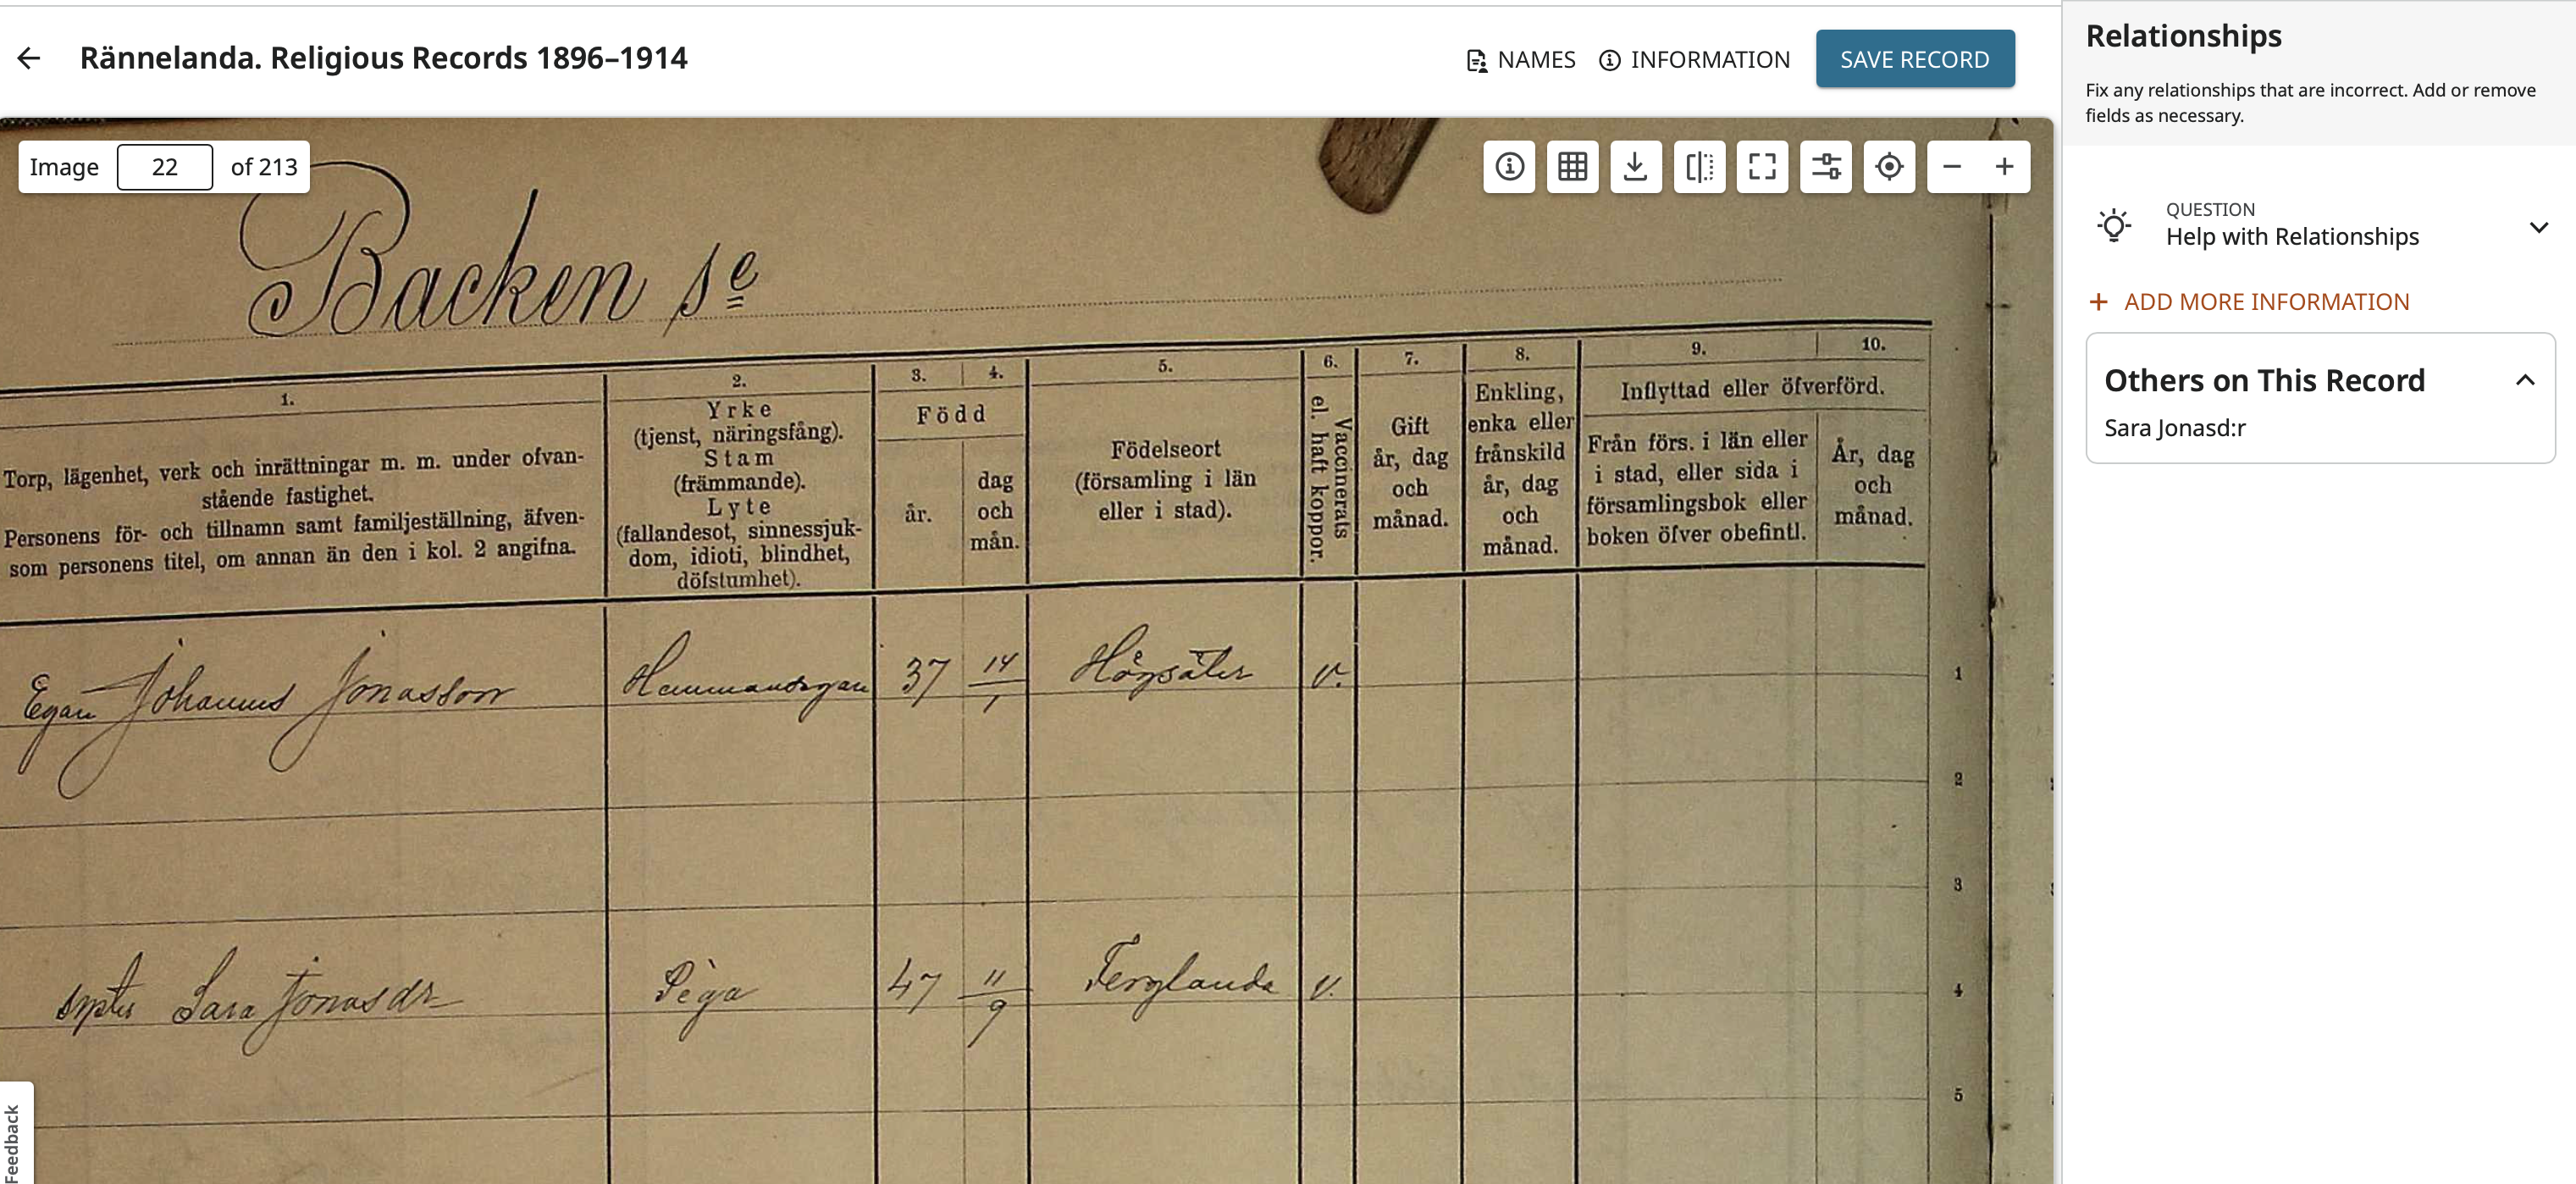 Rännelanda. Religious Records 1896–1914
NAMES
INFORMATION
SAVE RECORD
Image 22 of 213
Backen se
1.
Torp, lägenhet, verk och inrättningar m. m. under ofvan-
stående fastighet.
Personens för- och tillnamn samt familjeställning, äfven-
som personens titel, om annan än den i kol. 2 angifna.
2.
Yrke
(tjenst, näringsfång).
Stam
(främmande).
Lyte
(fallandesot, sinnessjuk-
dom, idioti, blindhet,
döfstumhet).
3. 4.
Född
år.
dag
och
mån.
5.
Födelseort
(församling i län
eller i stad).
6.
Vaccinerats
el. haft koppor.
7.
Gift
år, dag
och
månad.
8.
Enkling,
enka eller
frånskild
år, dag
och
månad.
9. 10.
Inflyttad eller öfverförd.
Från förs. i län eller
i stad, eller sida i
församlingsbok eller
boken öfver obefintl.
År, dag
och
månad.
Egan Johannes Jonasson Hemmansegare 37 14/1 Högsäter v. 1
2
3
Sara Jonasdr Piga 47 11/9 Ferglanda v. 4
5
Feedback
Relationships
Fix any relationships that are incorrect. Add or remove
fields as necessary.
QUESTION
Help with Relationships
+ ADD MORE INFORMATION
Others on This Record
Sara Jonasd:r